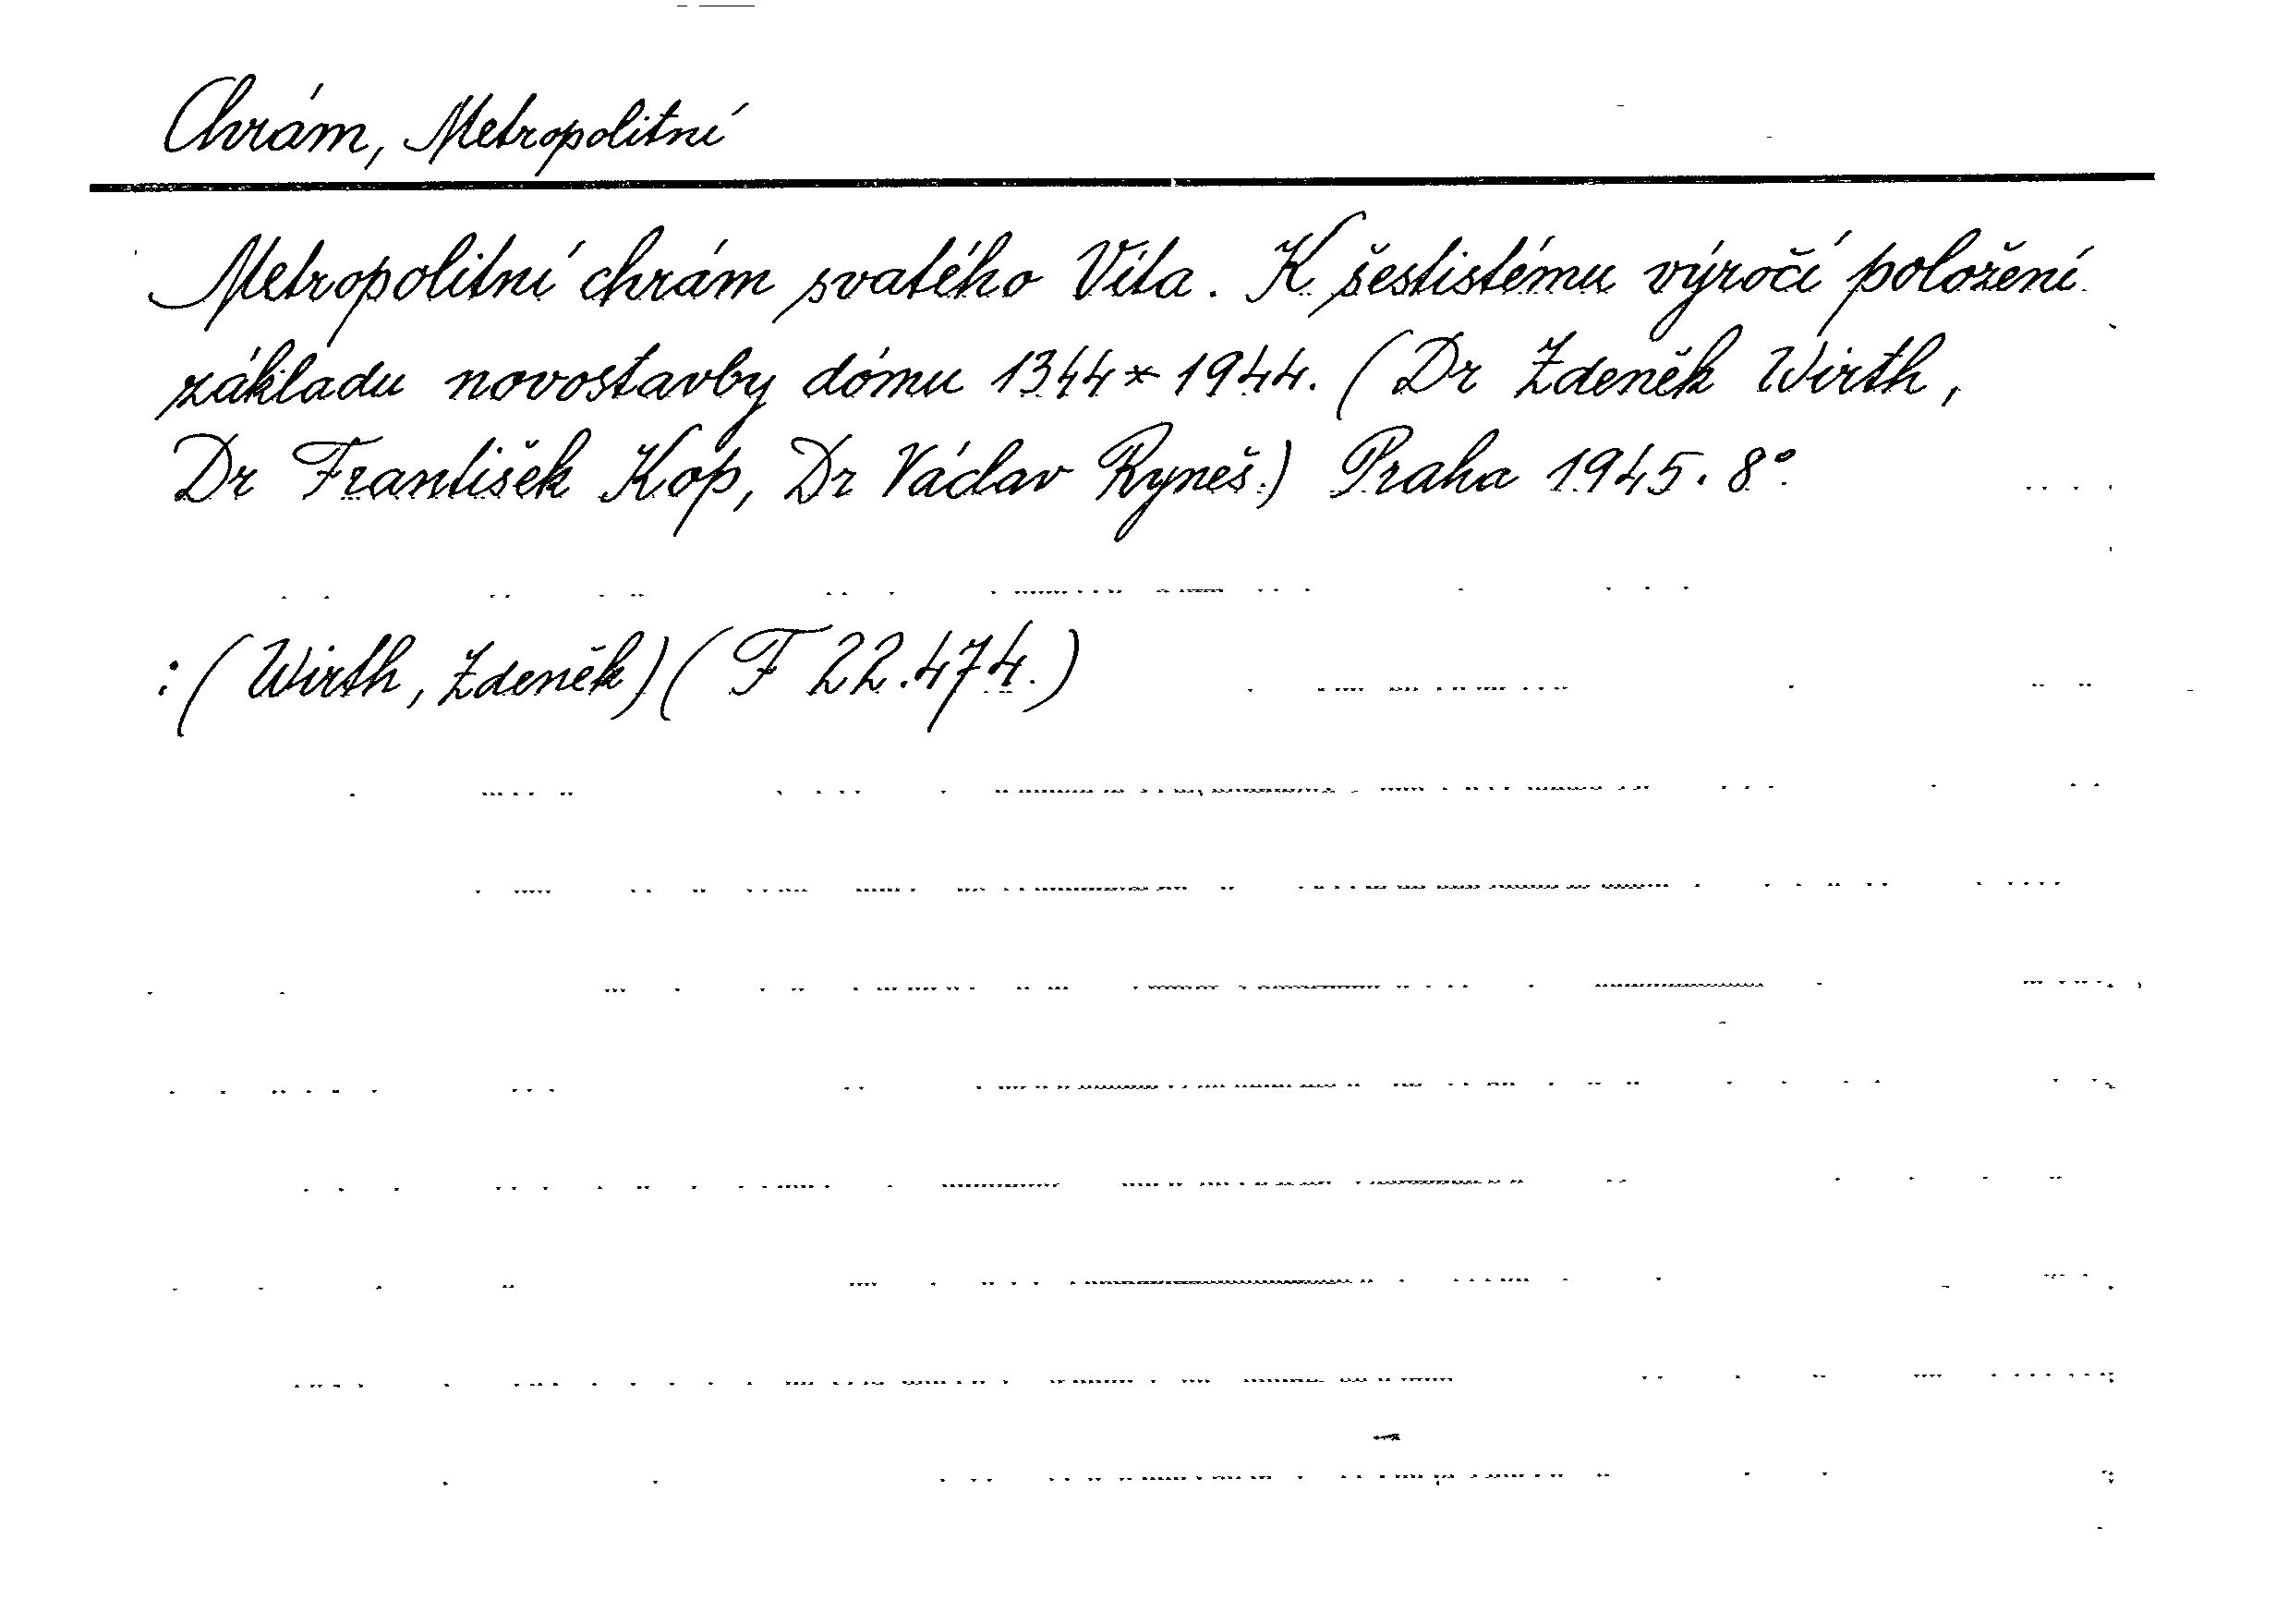 Chrám, Metropolitní
Metropolitní chrám svatého Víta. K šestistému výročí položení
základu novostavby dómu 1344*1944. (Dr Zdeněk Wirth,
Dr František Kop, Dr Václav Ryneš.) Praha 1945. 8°
:(Wirth, Zdeněk)(F 22.474.)